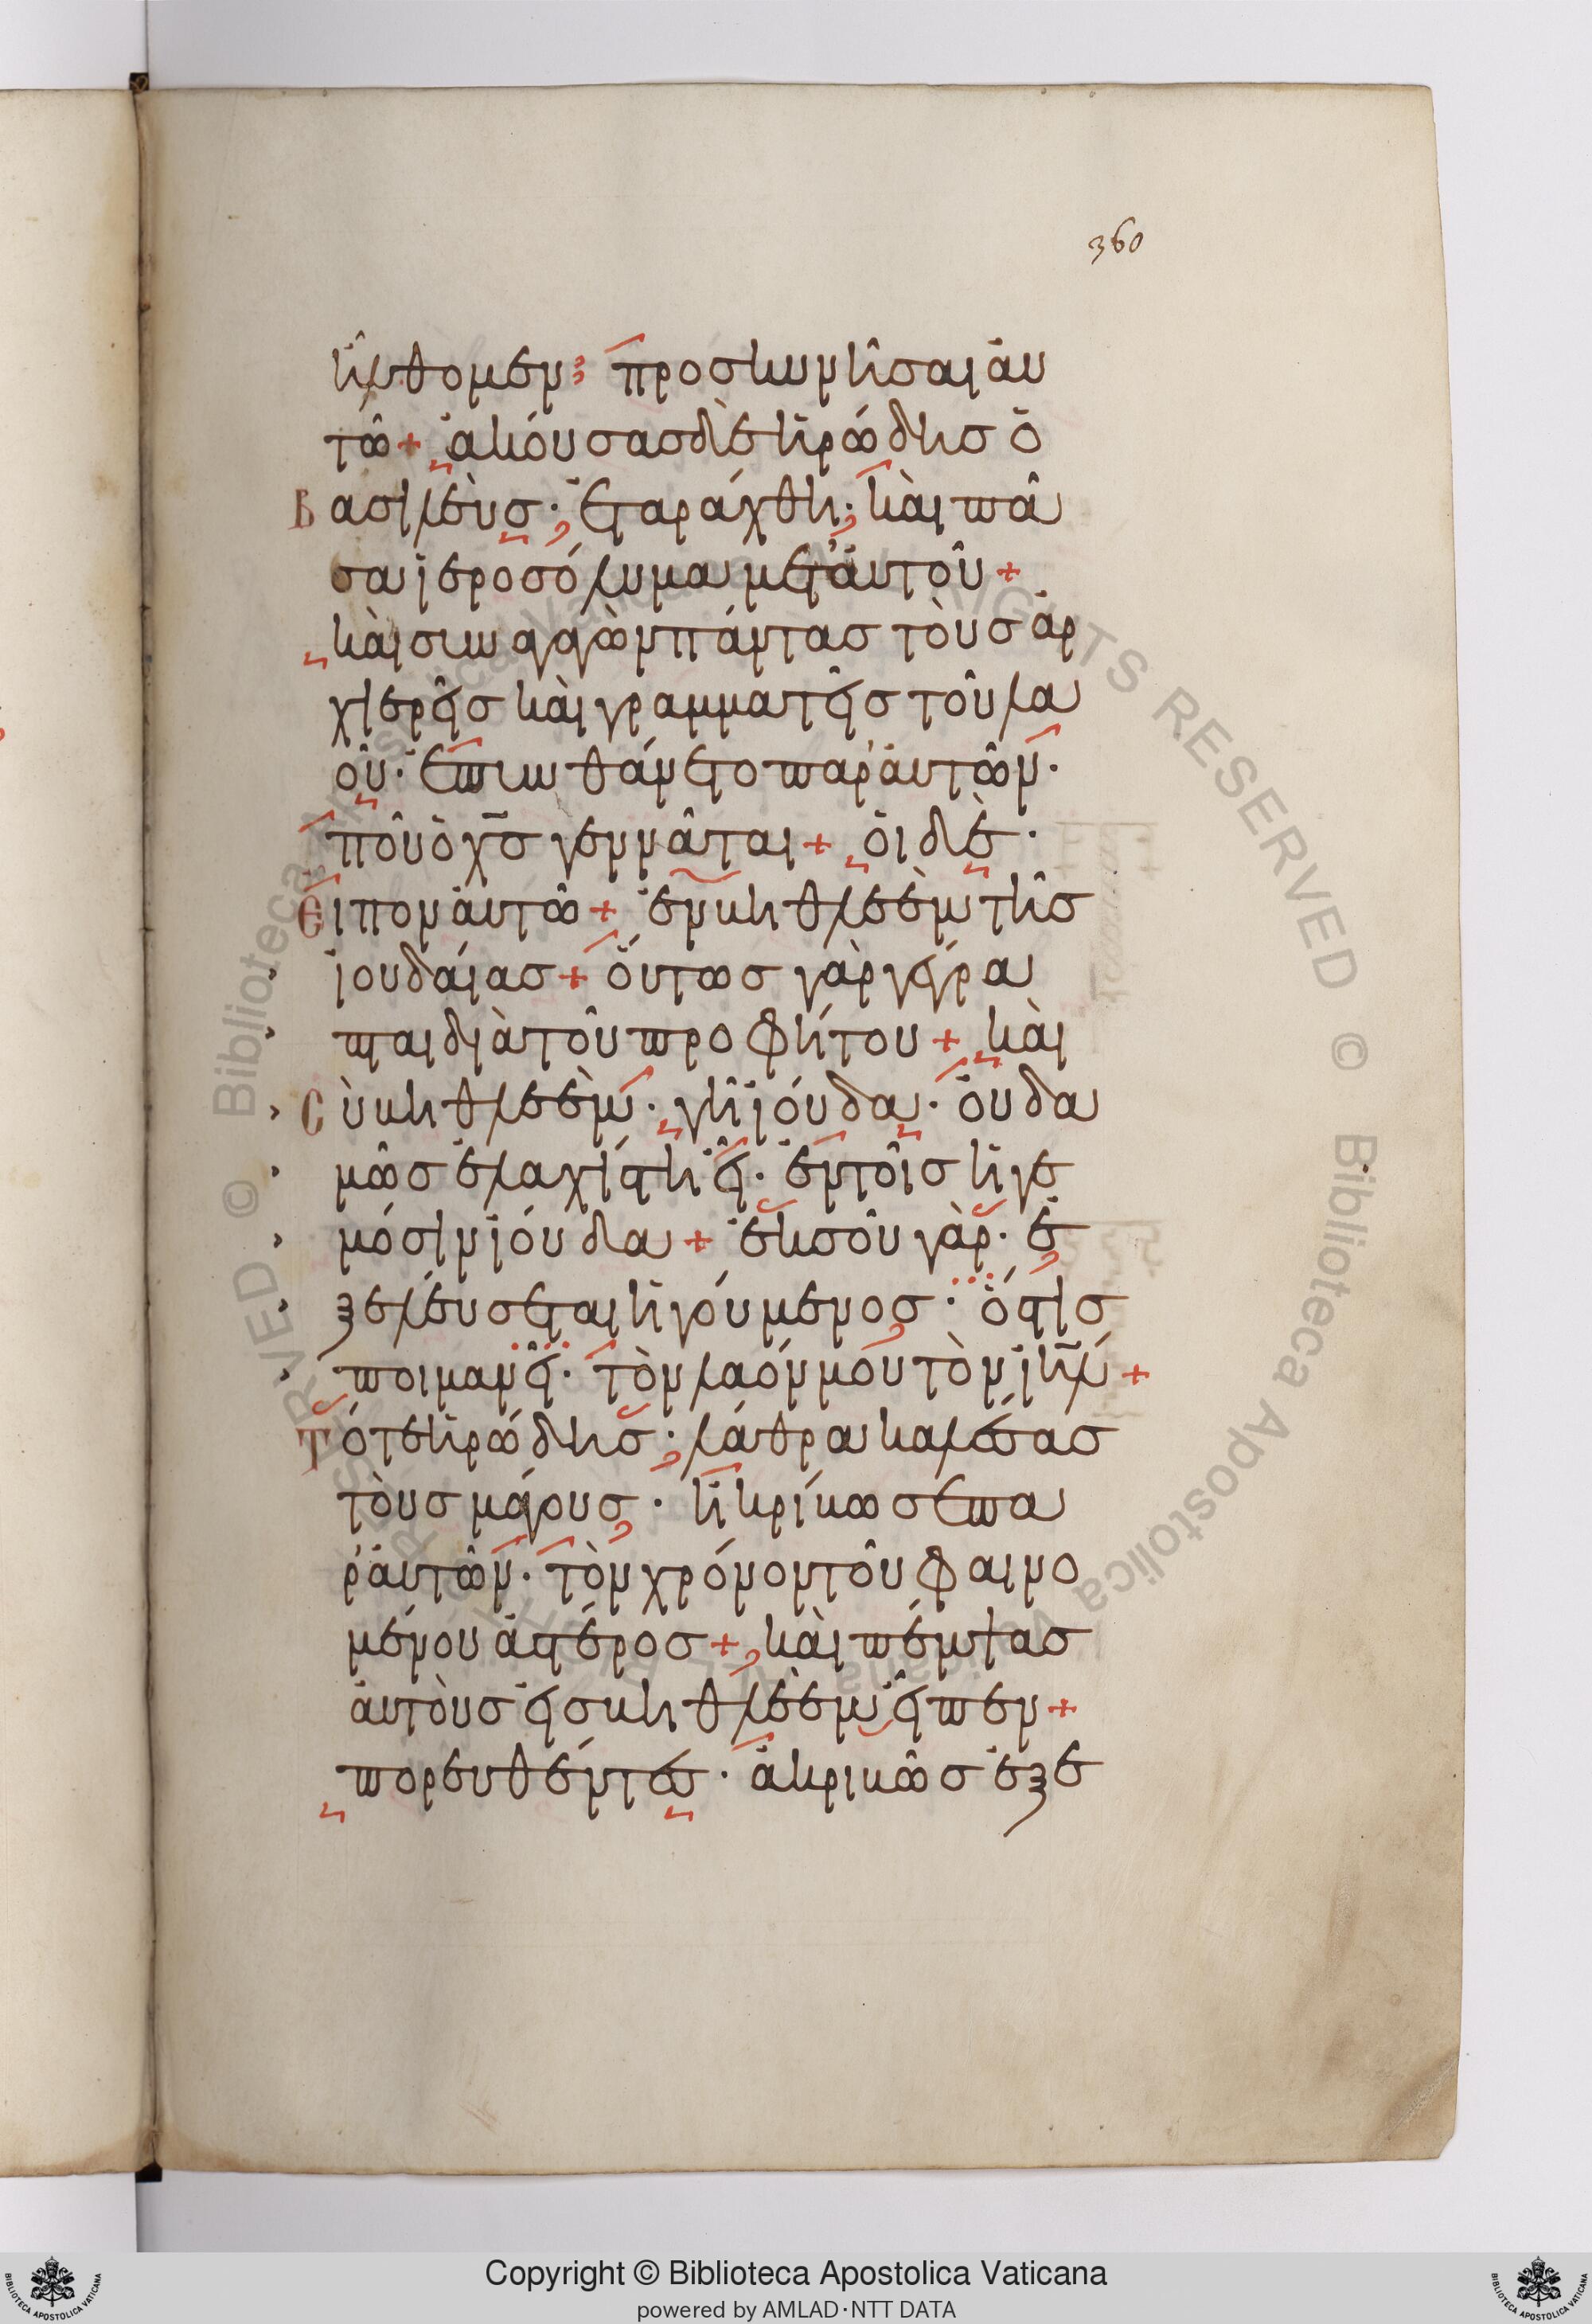 360
ἤλθομεν προσκυνῆσαι αὐ
τῶ + ἀκούσας δὲ ἡρώδης ὁ
βασιλεὺς · ἐταράχθη · καὶ πᾶ
σα ἱεροσόλυμα μετ' αὐτοῦ +
καὶ συναγαγὼν πάντας τοὺς ἀρ
χιερεῖς καὶ γραμματεῖς τοῦ λα
οῦ · ἐπυνθάνετο παρ' αὐτῶν ·
ποῦ ὁ χ̅ς γεννᾶται + οἱ δὲ ·
εἶπον αὐτῶ + ἐν βηθλεὲμ τῆς
ἰουδαίας + οὕτως γὰρ γέγρα
πται διὰ τοῦ προφήτου + καὶ
σὺ βηθλεὲμ · γῆ ἰούδα · οὐδα
μῶς ἐλαχίστη εἶ · ἐν τοῖς ἡγε
μόσιν ἰούδα + ἐκ σοῦ γὰρ · ἐ
ξελεύσεται ἡγούμενος · ὅστις
ποιμανεῖ · τὸν λαόν μου τὸν ἰη̅λ +
τότε ἡρώδης · λάθρα καλέσας
τοὺς μάγους · ἠκρίβωσε πα
ρ' αὐτῶν · τὸν χρόνον τοῦ φαινο
μένου ἀστέρος + καὶ πέμψας
αὐτοὺς εἰς βηθλεὲμ εἶπεν +
πορευθέντες · ἀκριβῶς ἐξε
Copyright © Biblioteca Apostolica Vaticana
powered by AMLAD·NTT DATA